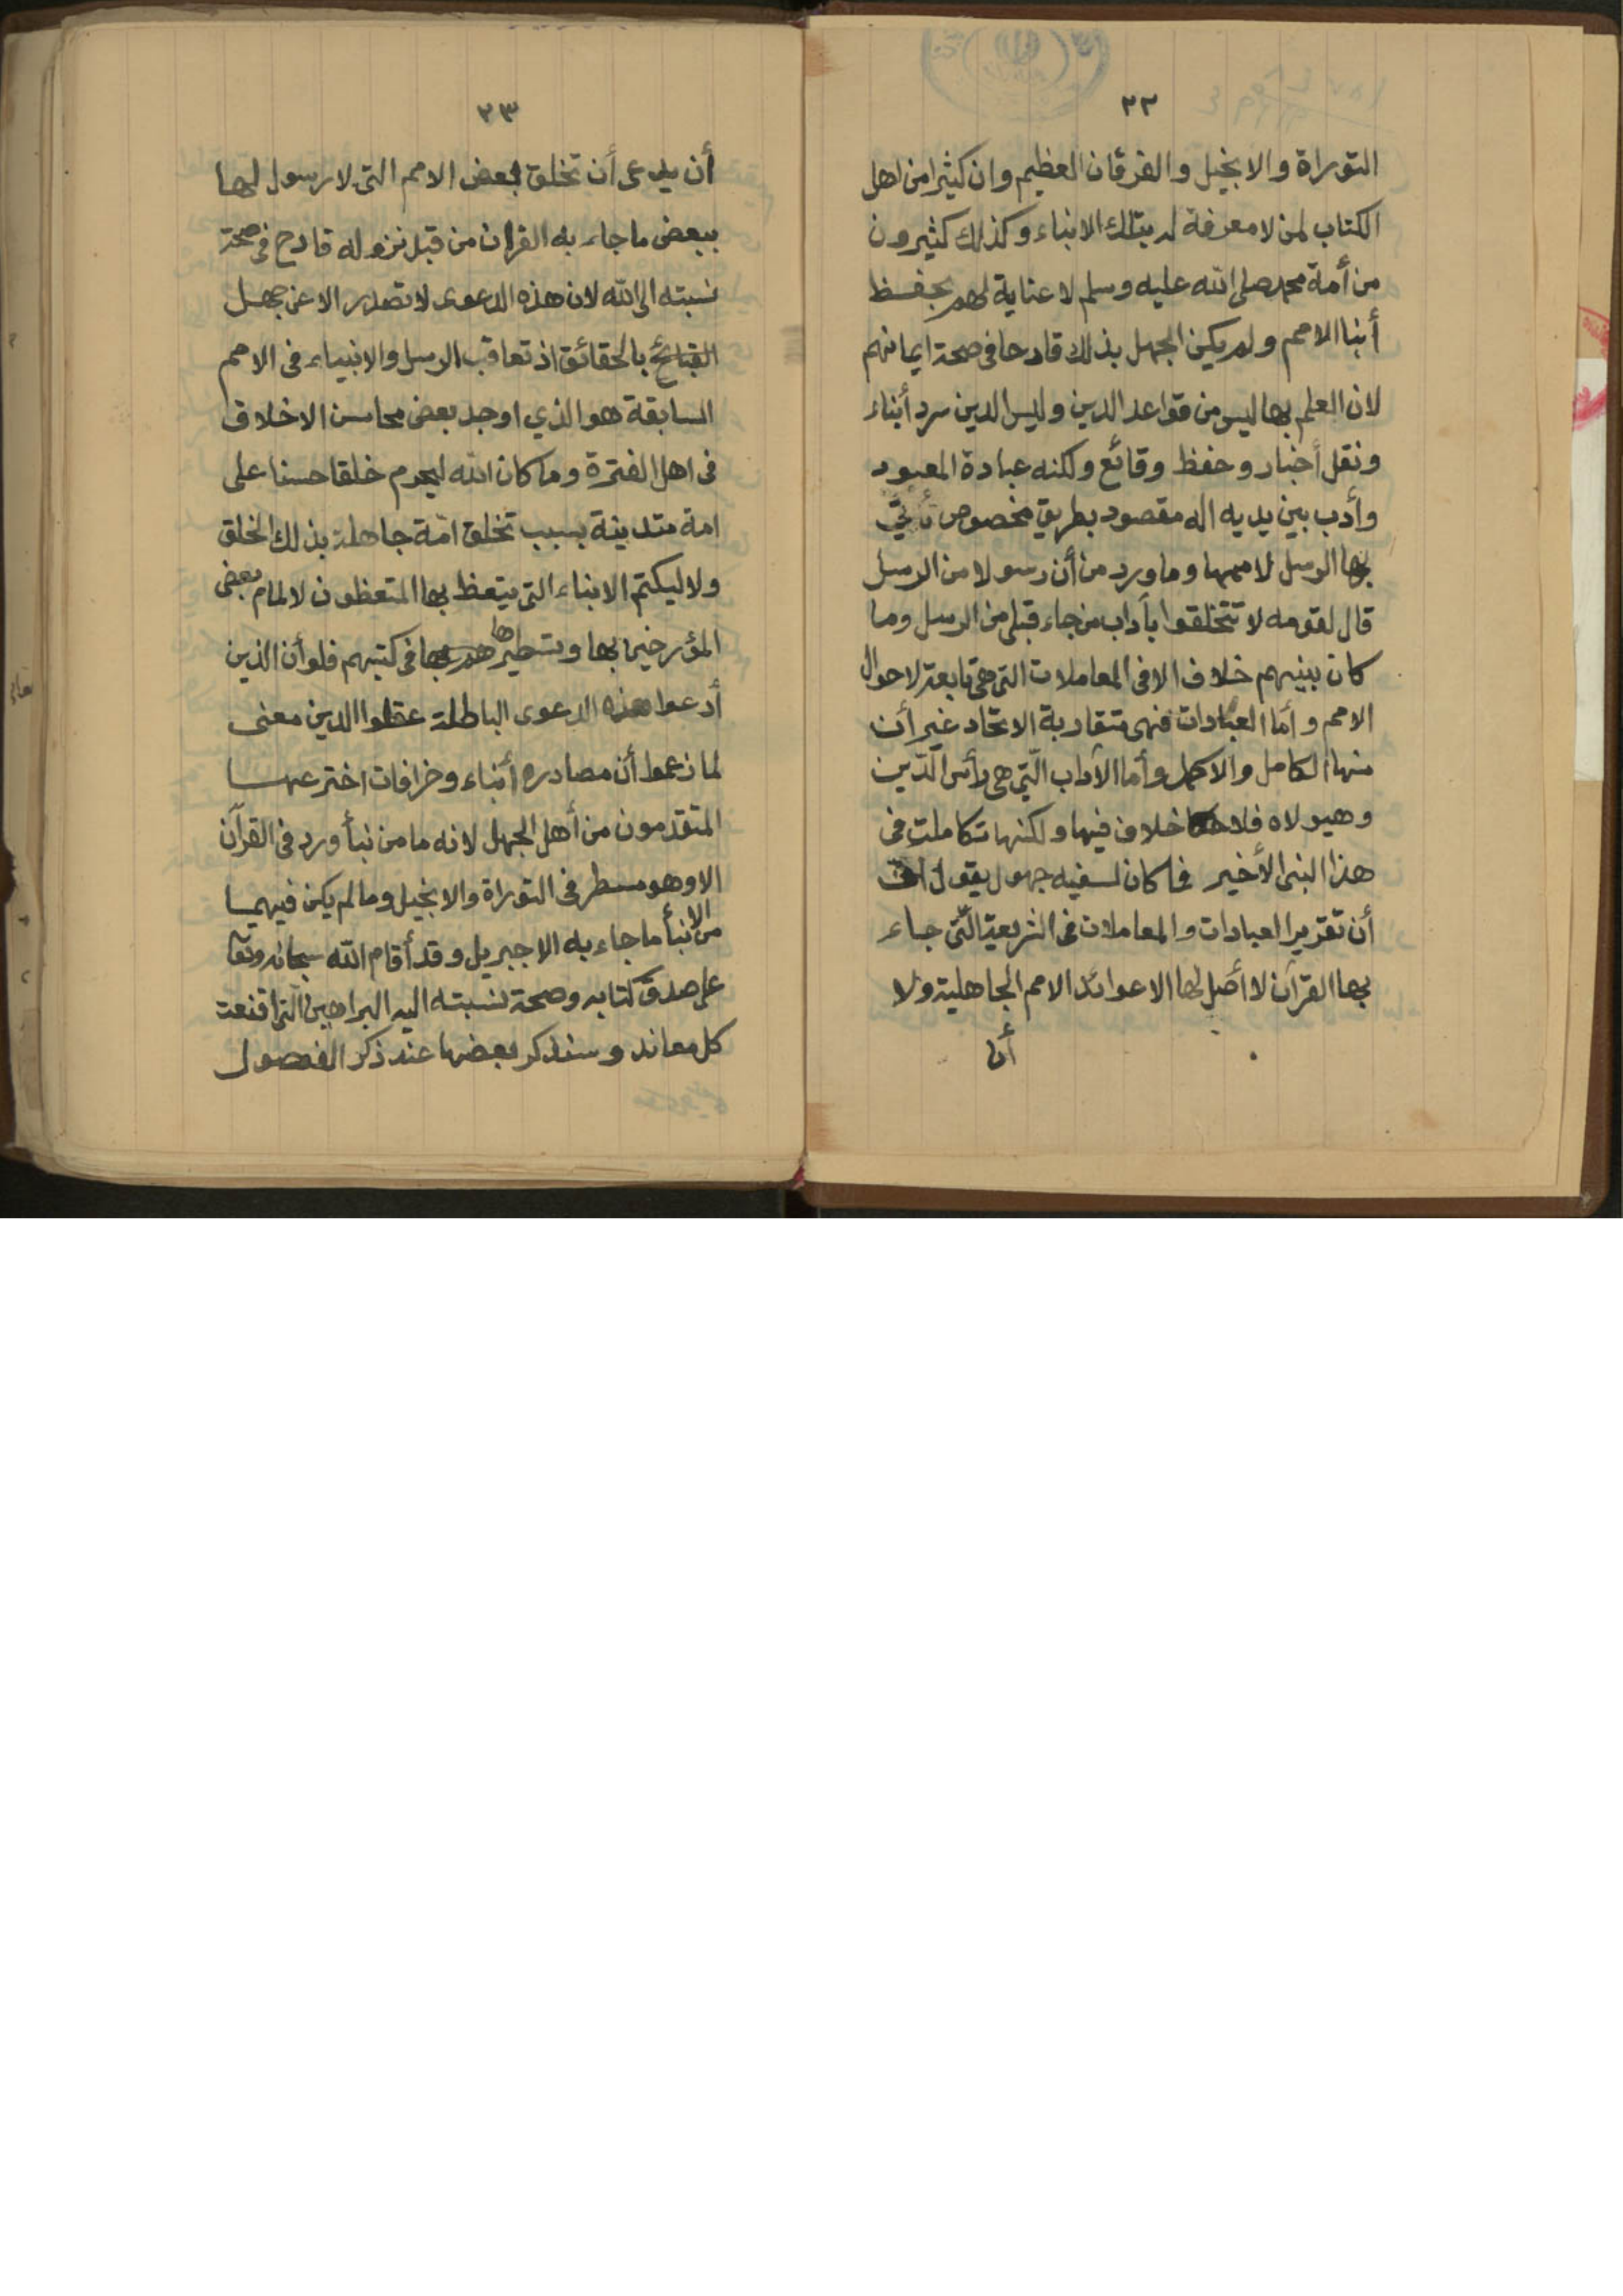 ٢٢
التوراة والانجيل والفرقان العظيم وان كثيرا من اهل
الكتاب لمن لا معرفة له بتلك الانباء وكذلك كثيرون
من أمة محمد صلى الله عليه وسلم لا عناية لهم بحفظ
أنبا الامم ولم يكن الجهل بذلك قادحا فى صحة ايمانهم
لان العلم بها ليس من قواعد الدين وليس الدين سرد أنباء
ونقل أخبار وحفظ وقائع ولكنه عبادة المعبود
وأدب بين يديه اله مقصود بطريق مخصوص تأتى
بها الرسل لاممها وما ورد من أن رسولا من الرسل
قال لقومه لا تتخلقوا بآداب من جاء قبلى من الرسل وما
كان بينهم خلاف الا فى المعاملات التى هى تابعة لاحوال
الامم وأما العبادات فهى متقاربة الاتحاد غير أن
منها الكامل والاكمل وأما الآداب الّتى هى رأس الدّين
وهيولاه فلا خلاف فيها ولكنها تكاملت فى
هذا النبى الأخير فما كان لسفيه جهول يقول
أن تقرير العبادات والمعاملات فى الشريعة الّتى جاء
بها القرآن لا أصل لها الا عوائد الامم الجاهلية ولا
أن
٢٣
أن يدعى أن تخلق بعض الامم التى لا رسول لها
ببعض ما جاء به القران من قبل نزوله قادح فى صحة
نسبته الى الله لان هذه الدعوى لا تصدر الا عن جهل
القبائح بالحقائق اذ تعاقب الرسل والانبياء فى الامم
السابقة هو الذي اوجد بعض محاسن الاخلاق
فى اهل الفترة وما كان الله ليحرم خلقا حسنا على
امة متدينة بسبب تخلق امّة جاهلة بذلك الخلق
ولا ليكتم الانباء التى يتعظ بها المتعظون لالمام بعض
المؤرخين بها وتسطيرها فى كتبهم فلو أن الذين
أدعوا هذه الدعوى الباطلة عقلوا الدين معنى
لما زعموا أن مصادره أنباء وخرافات اخترعها
المتقدمون من أهل الجهل لانه ما من نبأ ورد فى القرآن
الا وهو مسطر فى التوراة والانجيل وما لم يكن فيهما
من الانبأ ما جاء به الا جبريل وقد أقام الله سبحانه وتعا
على صدق كتابه وصحة نسبته اليه البراهين التى اقنعت
كل معاند وسنذكر بعضها عند ذكر الفصول